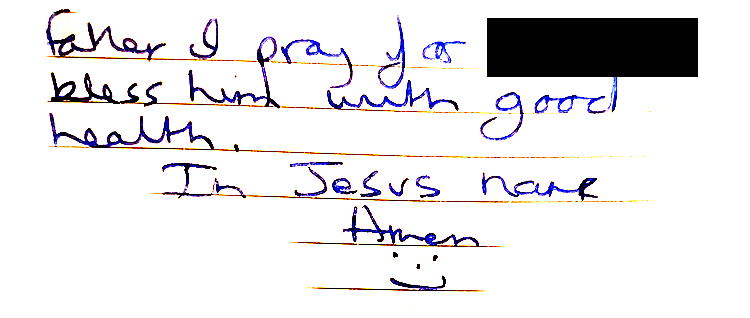 Father I pray for
bless him with good
health.
In Jesus name
Amen